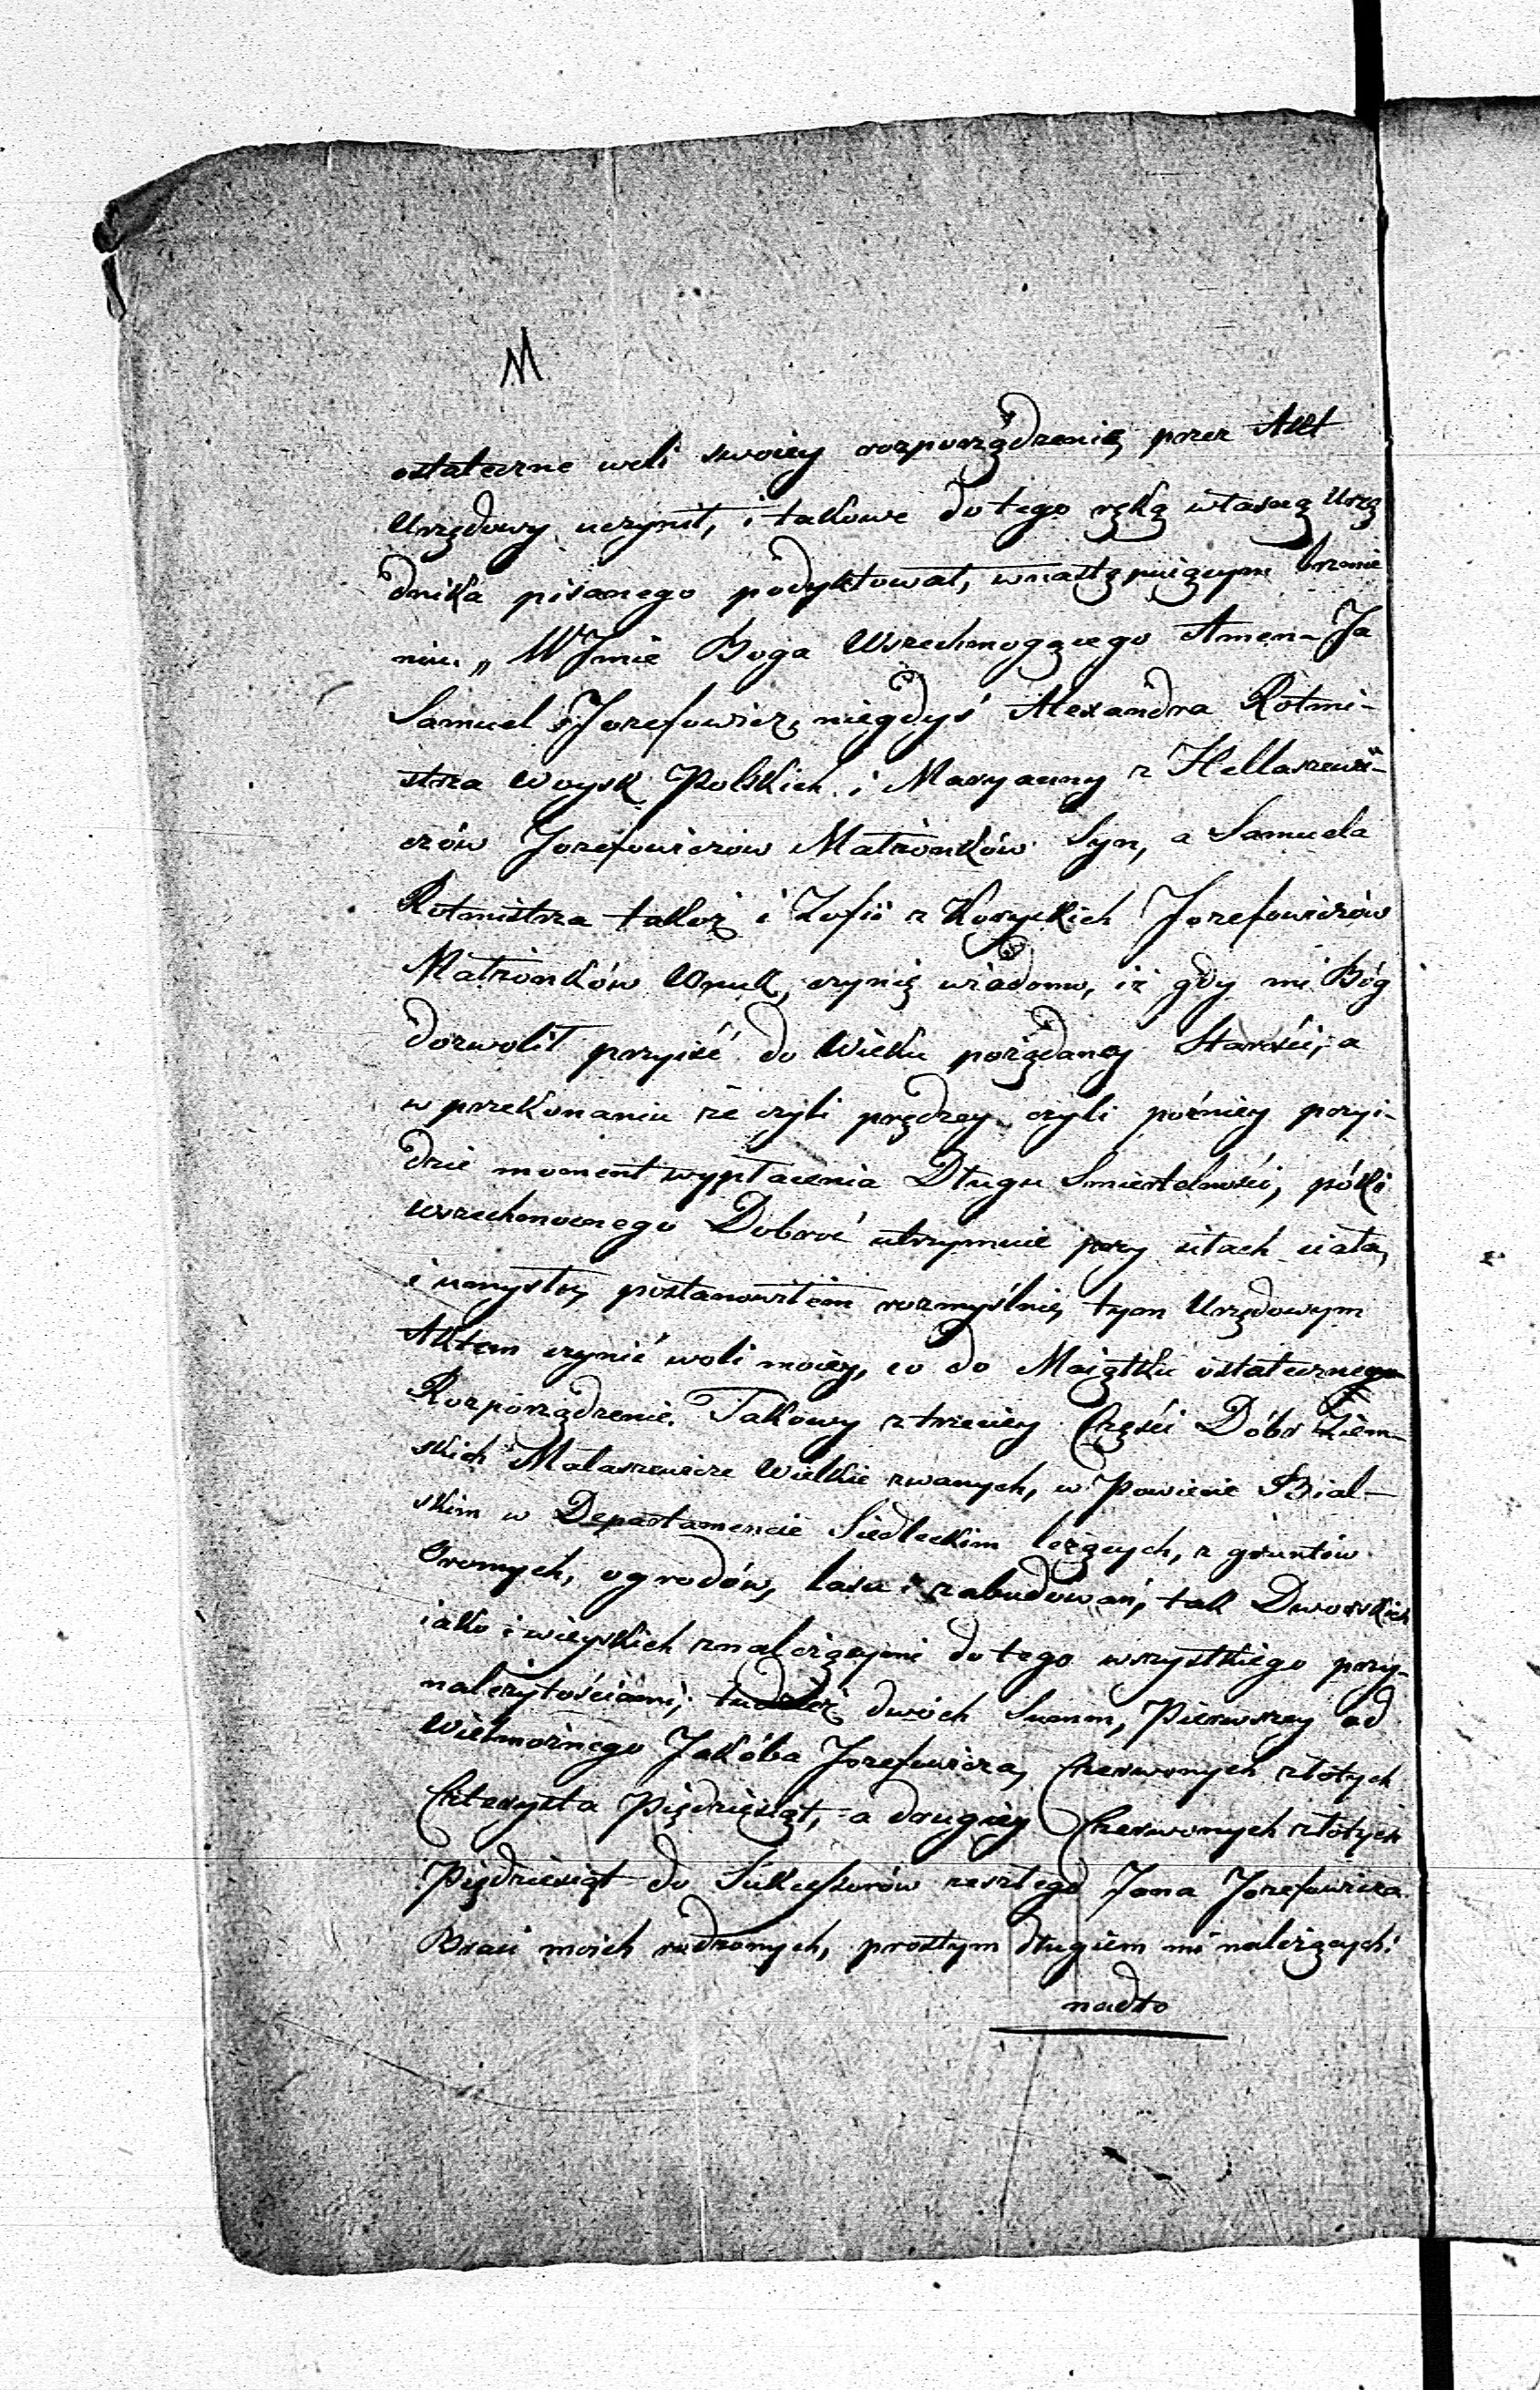 M
ostateczne woli swoiey rozporządzenie przez Akt
Urzędowy uczynił, i takowe do tego ręką własną Urzę
dnika pisanego podyktował, w następuiącym brzmie
niu. „ W Imie Boga Wszechmogącego Amen – Ja
Samuel Jozefowicz, niegdyś Alexandra Rotmi-
strza Woysk Polskich i Maryanny z Hellaszewi-
czów Jozefowiczow Małżonków Syn, a Samuela
Rotmistrza takoż i Zofii z Koryckich Jozefowiczów
Małżonków Wnuk, czynię wiadomo, iż gdy mi Bóg
dozwolił przyiść do Wieku pożądaney Starości, a
w przekonaniu że czyli prędzey czyli poźniey przyi-
dzie moment wypłacenia Długu Smiertelności, póki
wszechmocnego Dobroć utrzymuie przy siłach ciała,
i umysłu, postanowiłem rozmyślnie, tym Urzędowym
Aktem czynić woli moiey, co do Maiątku ostatecznego
Rozporządzenie. Takowy z trzeciey Części Dóbr Ziem-
skich Małaszewicze Wielkie zwanych, w Powiecie Bial-
skim w Departamencie Siedleckim leżących, z gruntów
Ornych, ogrodów, lasu i zabudowań, tak Dworskich
iako i wieyskich z należącymi do tego wszystkiego przy-
należytościami, tudzież dwóch Summ, Pierwszey od
Wielmożnego Jakóba Jozefowicza, Czerwonych złotych
Czterysta Pięдziesiąt, a drugiey Czerwonych złotych
Pięдziesiąt do Sukcessorów zeszłego Jana Jozefowicza
Braci moich rodzonych, prostym długiem mi należących:
nadto